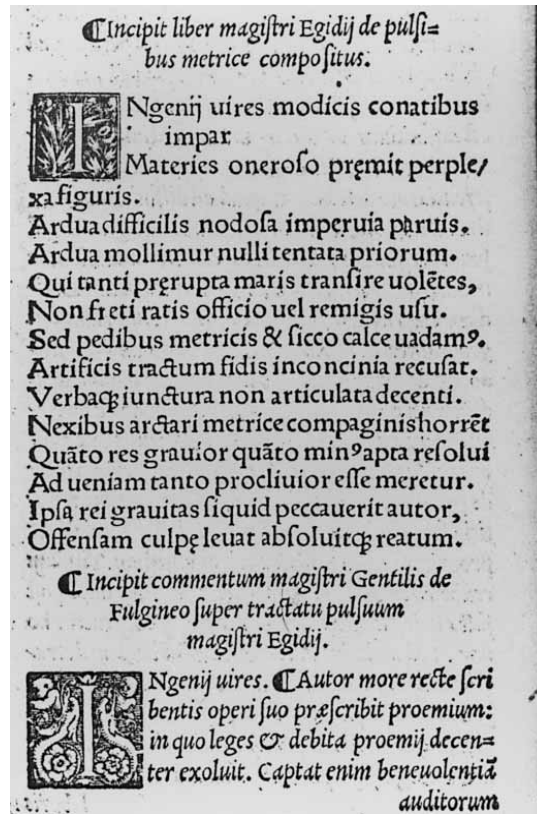 ¶Incipit liber magiſtri Egidij de pulſi=
bus metrice compoſitus.
INgenij uires modicis conatibus
impar
Materies oneroſo pręmit perple/
xa figuris.
Ardua difficilis nodoſa imperuia paruis.
Ardua mollimur nulli tentata priorum.
Qui tanti pręrupta maris tranſire uolẽtes,
Non freti ratis officio uel remigis uſu.
Sed pedibus metricis & ſicco calce uadamꝰ.
Artificis tractum fidis inconcinia recuſat.
Verbaqꝫ iunctura non articulata decenti.
Nexibus arctari metrice compaginis horrẽt
Quãto res grauior quãto minꝰ apta reſolui
Ad ueniam tanto procliuior eſſe meretur.
Ipſa rei grauitas ſiquid peccauerit autor,
Offenſam culpę leuat abſoluitqꝫ reatum.
¶Incipit commentum magiſtri Gentilis de
Fulgineo ſuper tractatu pulſuum
magiſtri Egidij.
INgenij uires. ¶Autor more recte ſcri
bentis operi ſuo præſcribit proemium:
in quo leges & debita proemij decen=
ter exoluit. Captat enim beneuolentiã
auditorum